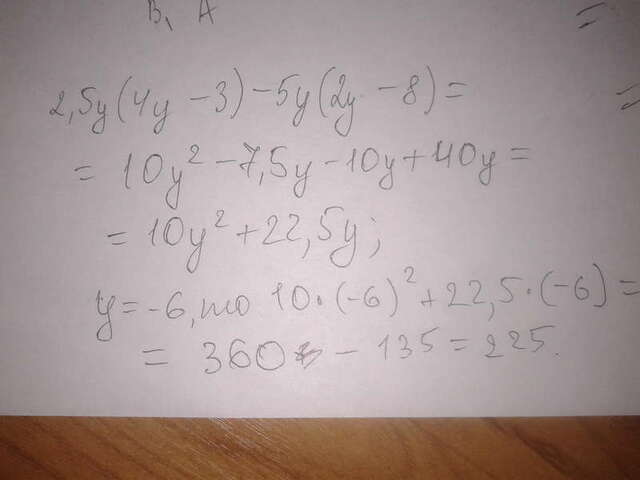 В, А =
2,5y(4y - 3) - 5y(2y - 8) = =
= 10y² - 7,5y - 10y + 40y =
= 10y² + 22,5y;
y = -6, то 10·(-6)² + 22,5·(-6) =
= 360 - 135 = 225.